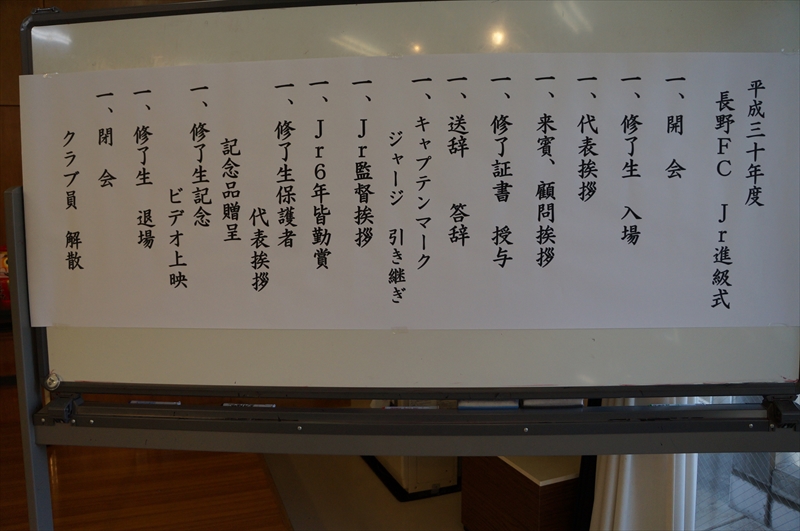 平成三十年度
長野ＦＣ　Ｊｒ進級式
一、開　会
一、修了生　入場
一、代表挨拶
一、来賓、顧問挨拶
一、修了証書　授与
一、送辞　　答辞
一、キャプテンマーク
ジャージ　引き継ぎ
一、Ｊｒ監督挨拶
一、Ｊｒ６年皆勤賞
一、修了生保護者
代表挨拶
記念品贈呈
一、修了生記念
ビデオ上映
一、修了生　退場
一、閉　会
クラブ員　解散